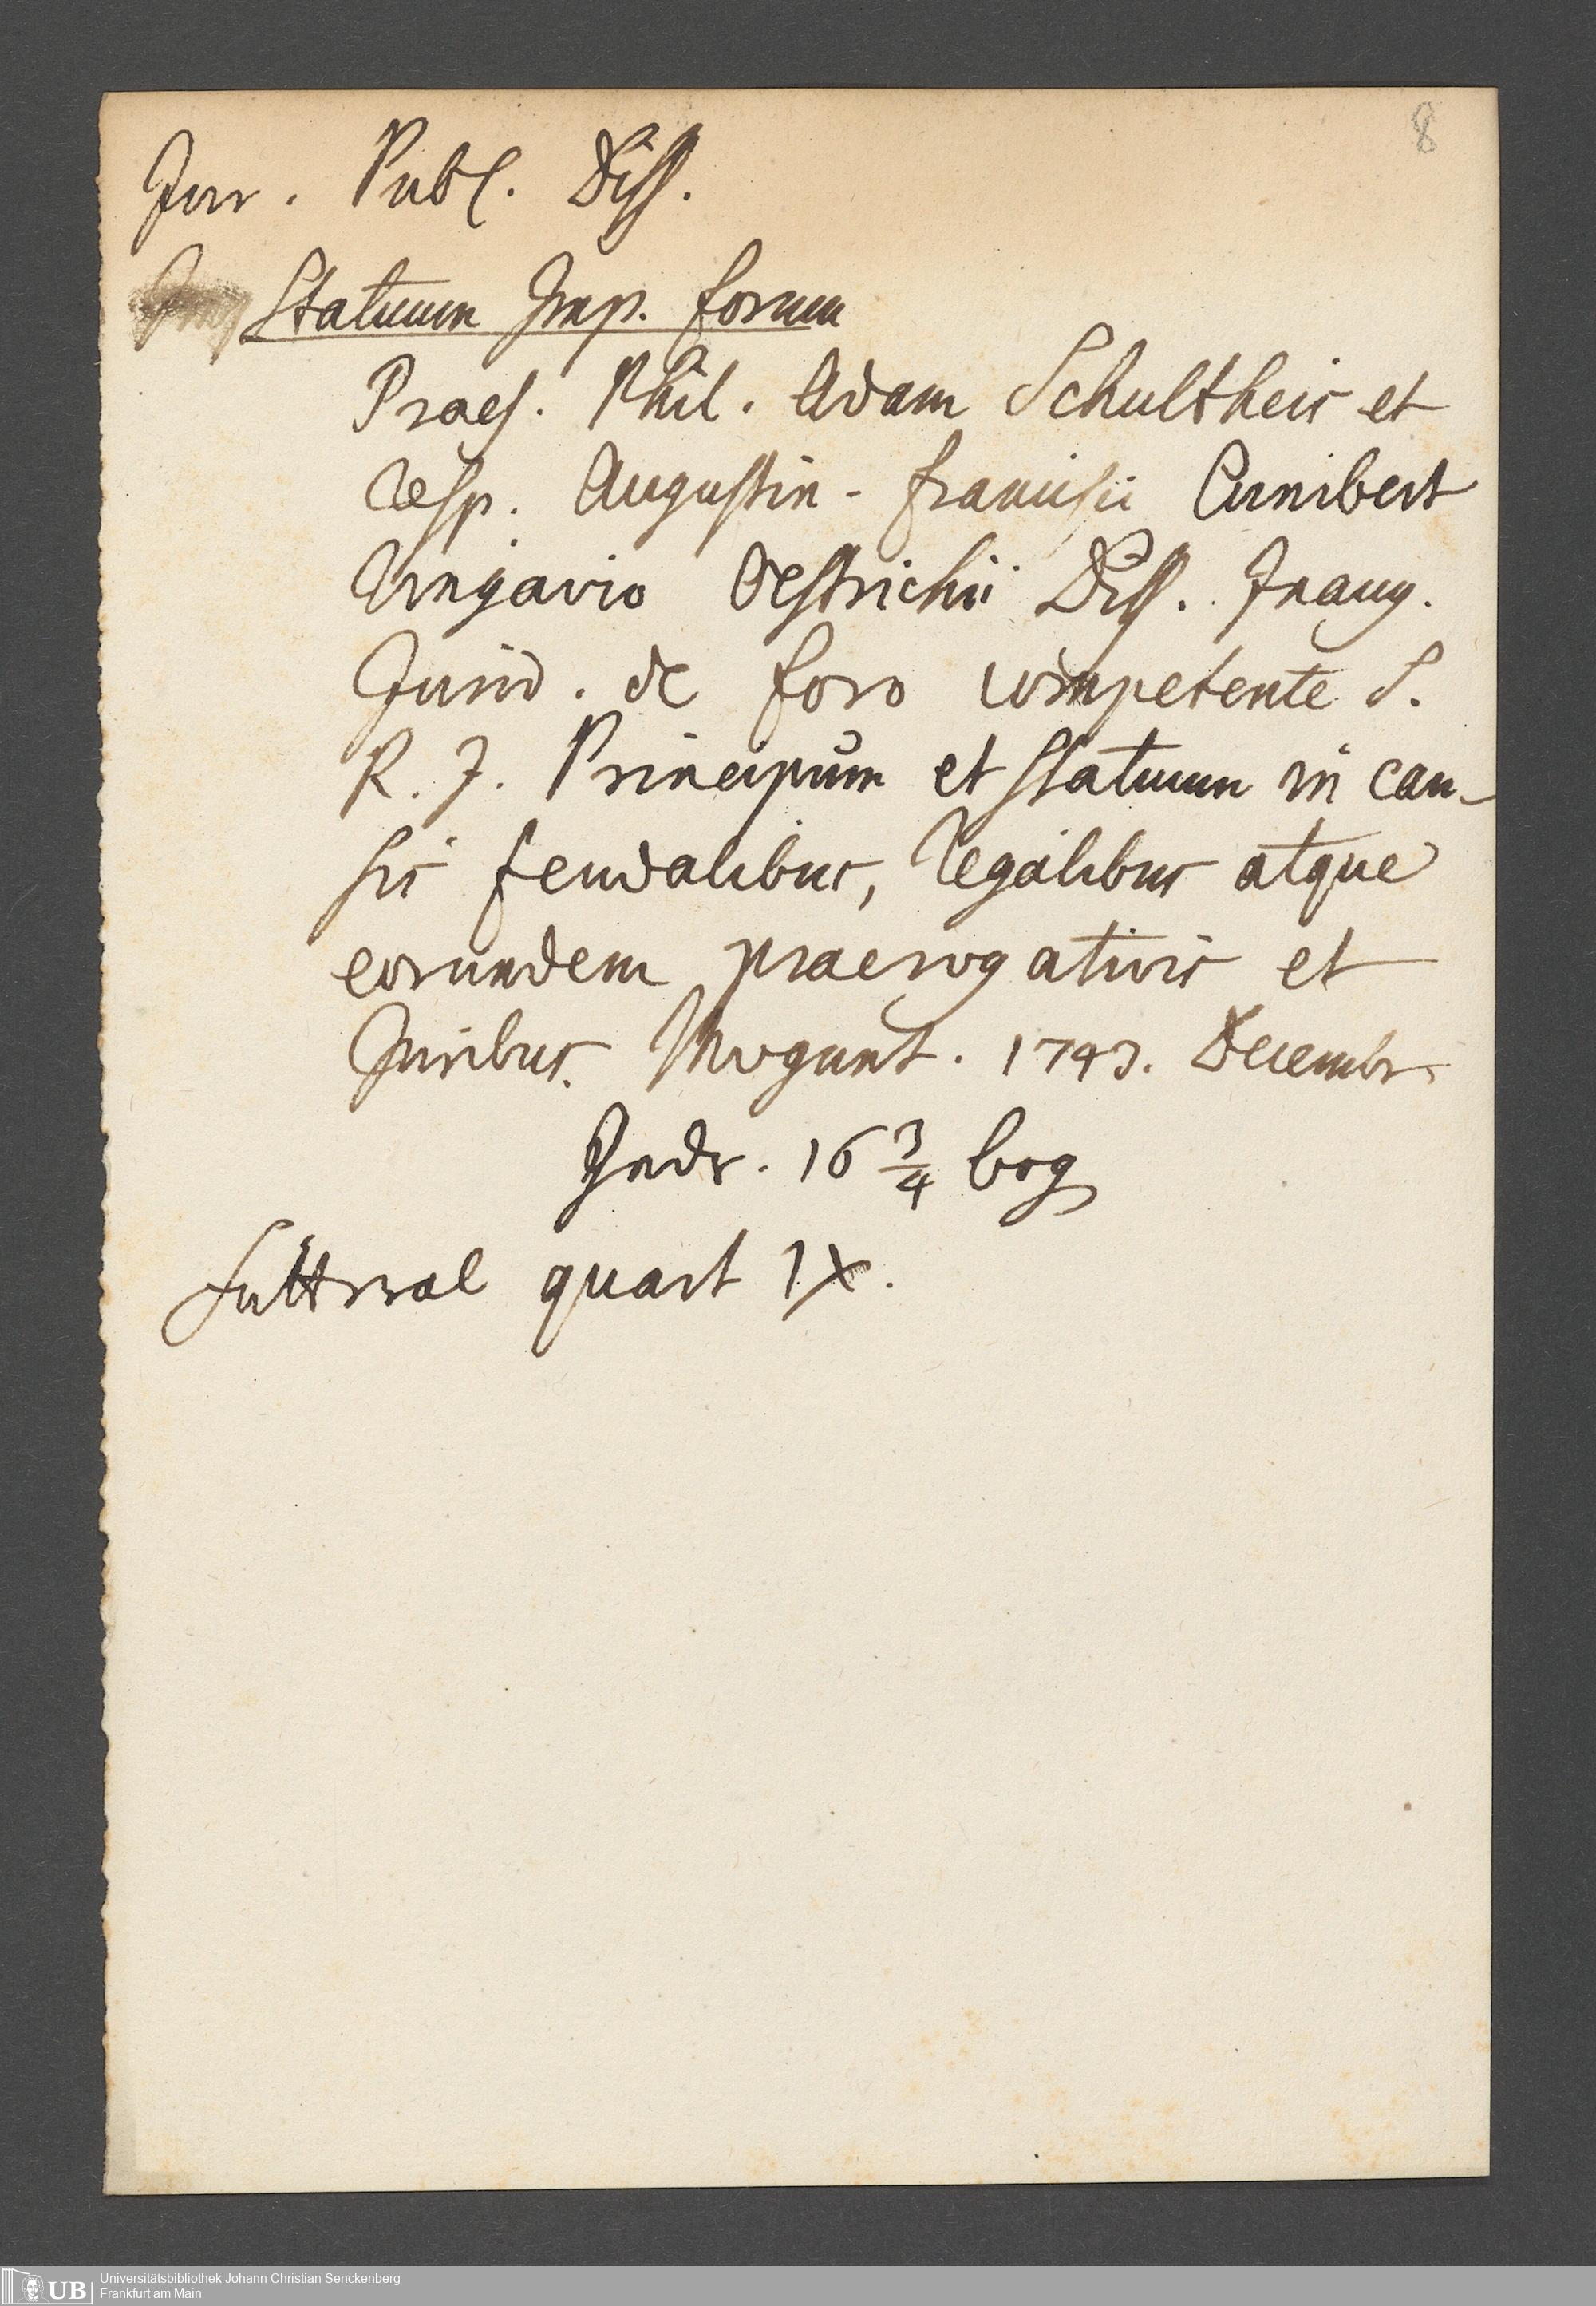 8
Jur. Publ. Diss.
Statuum Imp. forum
Praes. Phil. Adam Schultheis et
Resp. Augustin-Francisci Cunibert
Ringavio Oestrichii Diss. Inaug.
Jurid. de foro competente S.
R. I. Principum et Statuum in cau-
sis feudalibus, Regalibus atque
eorundem praerogativis et
Juribus. Mogunt. 1743. Decembr
16 3/4 bog
Futteral quart IX.
UB
Universitätsbibliothek Johann Christian Senckenberg
Frankfurt am Main